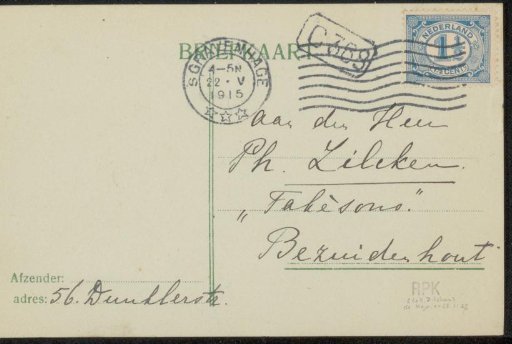 BRIEFKAART
'SGRAVENHAGE
4-5N
22 · V
1915
C359
NEDERLAND
1½
CENT
aan den Heer
Ph. Zilcken.
„Hélène
Bezuidenhout
Afzender:
adres: 56. Dunklerstr.
RPK